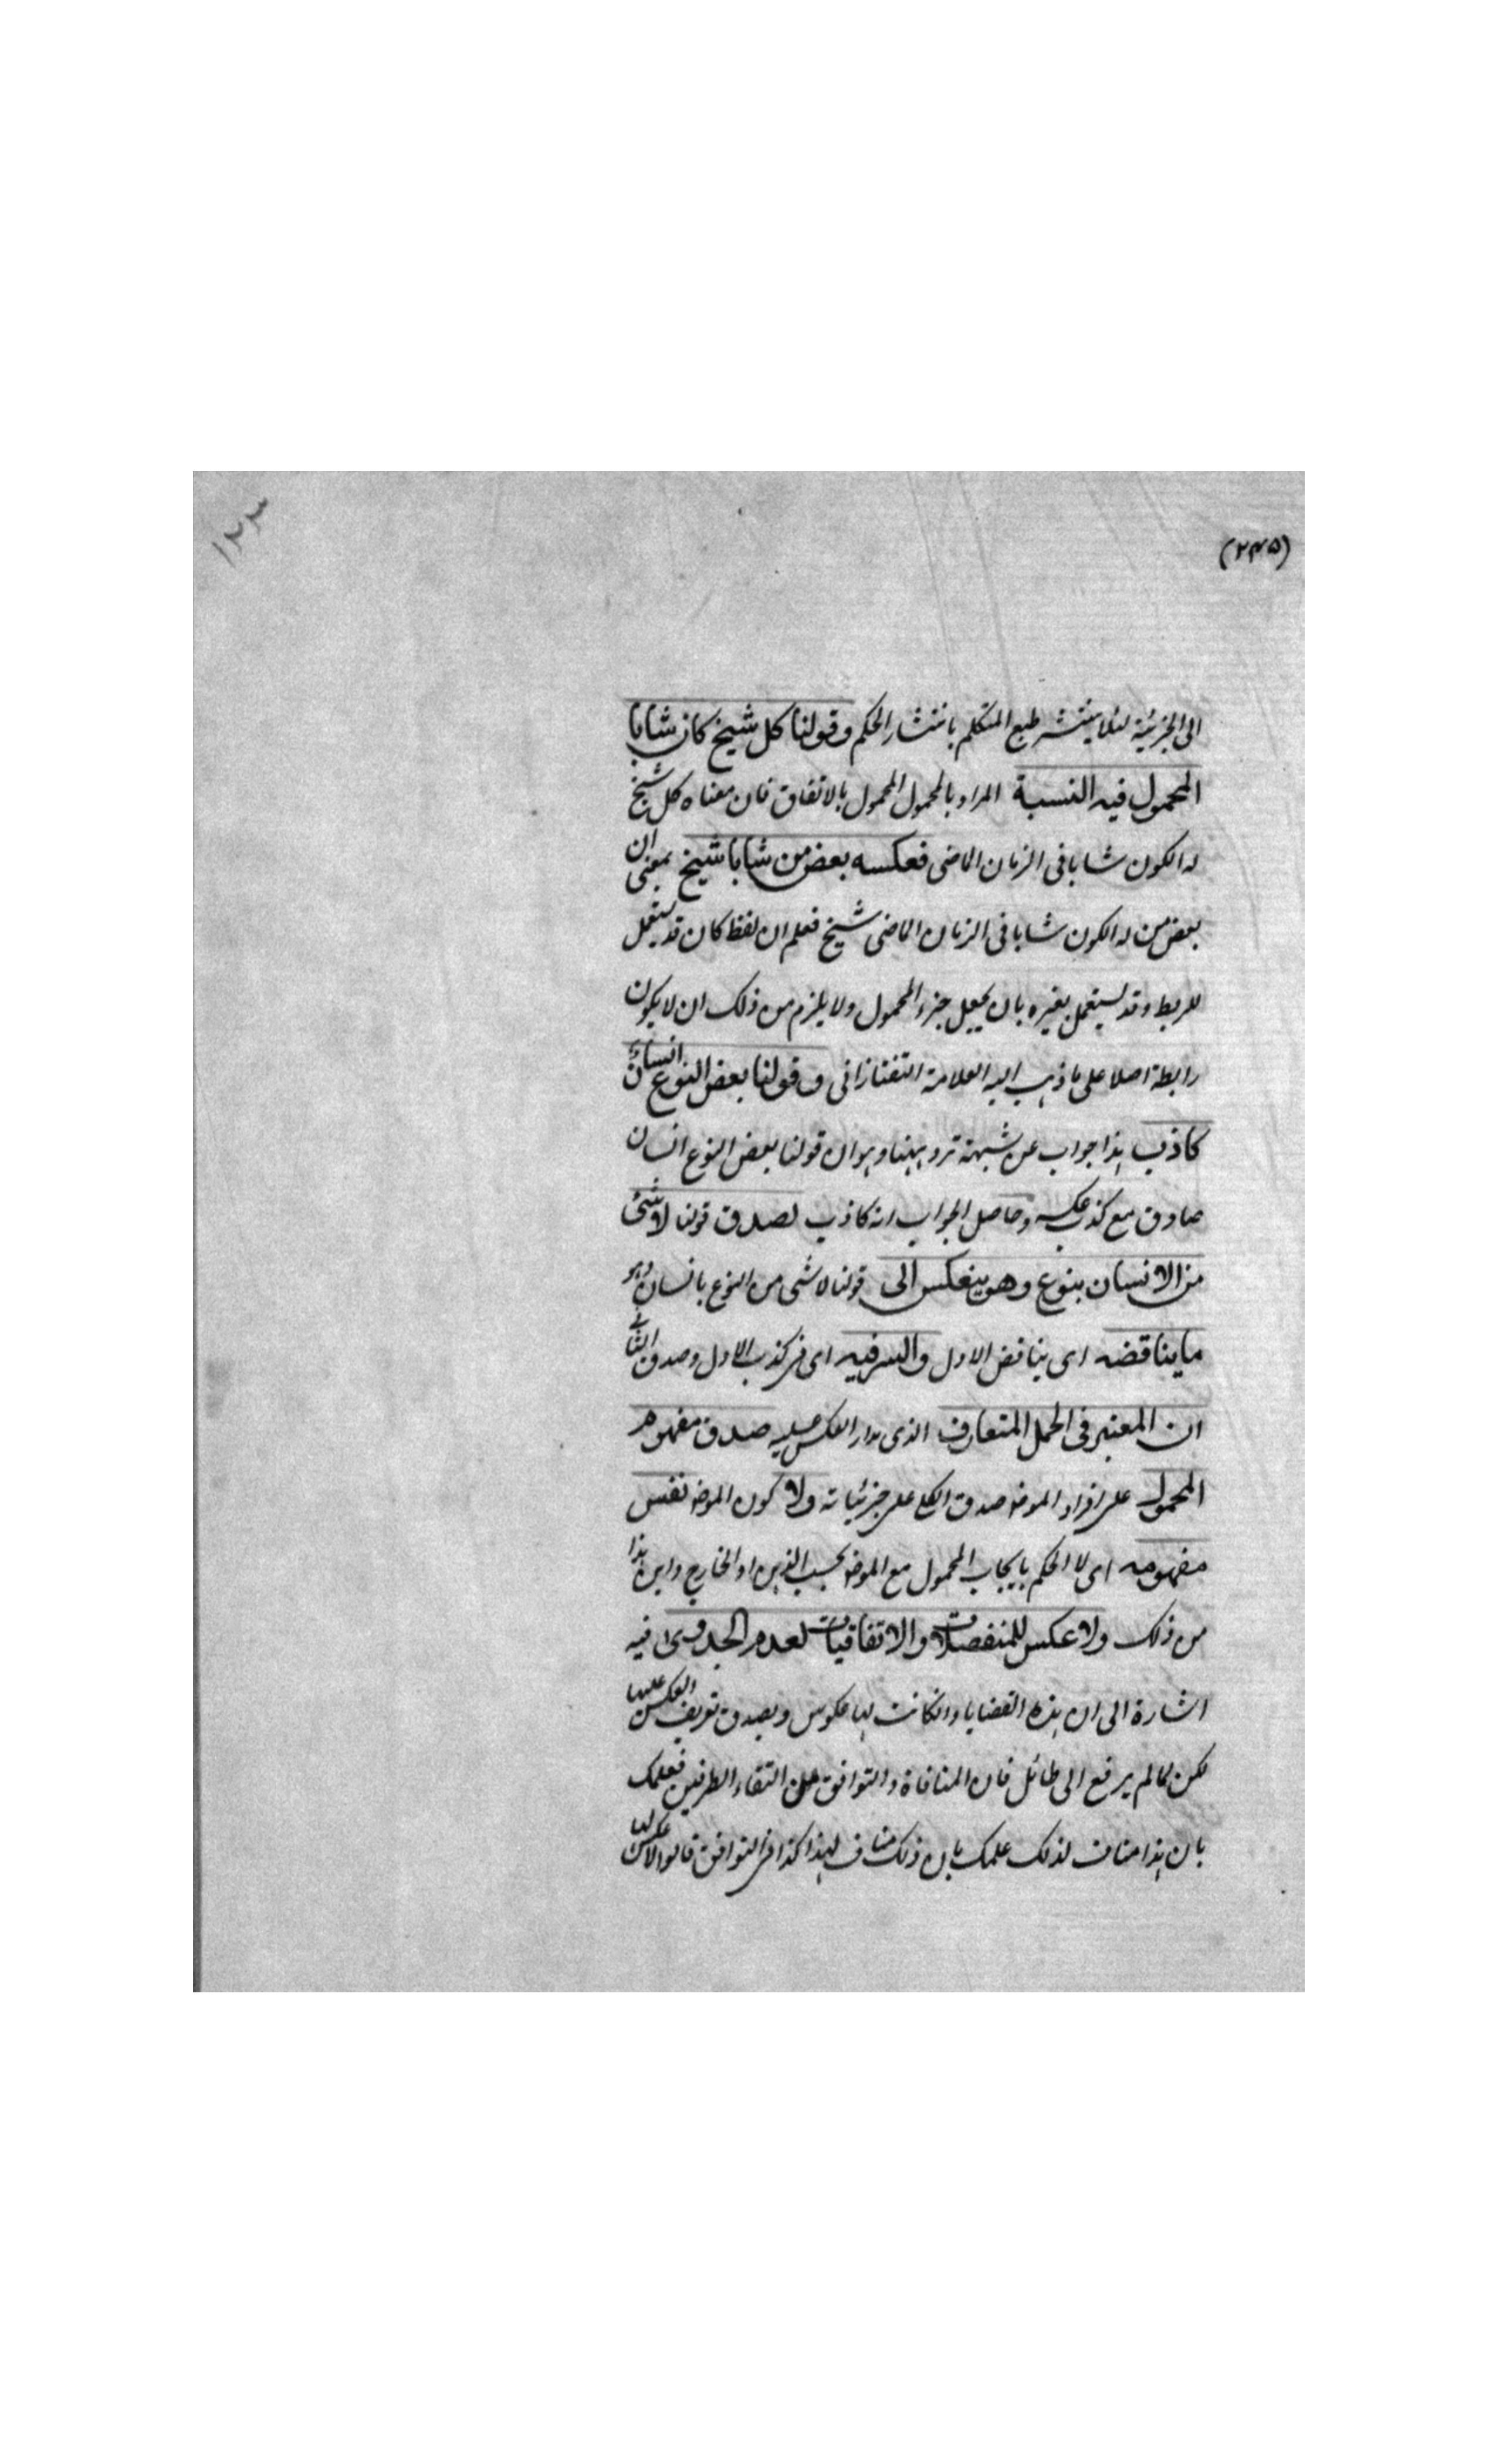 (٢٤٥)
١٢٣
الى الجزئية لئلا ينتشر طبع المتكلم بانتشار الحكم وقولنا كل شيخ كان شابا
المحمول فيه النسبة المراد بالمحمول المحمول بالاتفاق فان معناه كل شيخ
له الكون شابا فى الزمان الماضى فعكسه بعض من شابا شيخ بمعنى ان
بعض من له الكون شابا فى الزمان الماضى شيخ فعلم ان لفظ كان قد يستعمل
للربط وقد يستعمل بغيره بان يجعل جزء المحمول ولا يلزم من ذلك ان لا يكون
رابطة اصلا على ما ذهب اليه العلامة التفتازانى وقولنا بعض النوع انسان
كاذب هذا جواب عن شبهة ترد ههنا وهو ان قولنا بعض النوع انسان
صادق مع كذب عكسه وحاصل الجواب انه كاذب لصدق قولنا لا شئ
من الانسان بنوع وهو ينعكس الى قولنا لا شئ من النوع بانسان وهو
ما يناقضه اى يناقض الاول والسر فيه اى فى كذب الاول وصدق الثانى
ان المعتبر فى الحمل المتعارف الذى مدار العكس عليه صدق مفهوم
المحمول على افراد الموضو صدق الكلى على جزئياته ولا كون الموضو نفس
مفهومه اى لا الحكم بايجاب المحمول مع الموضو بحسب الذهن او الخارج واين هذا
من ذلك ولا عكس للمنفصلات والاتفاقيات لعدم الجدوى فيه
اشارة الى ان هذه القضايا وانكانت لها عكوس ويصدق تعريف العكس عليها
لكن لما لم يرفع الى طائل فان المنافاة والتوافق على التقاء الطرفين فعلمك
بان هذا مناف لذلك علمك بان ذلك مناف لهذا كذا فى التوافق قالوا لا عكس لها